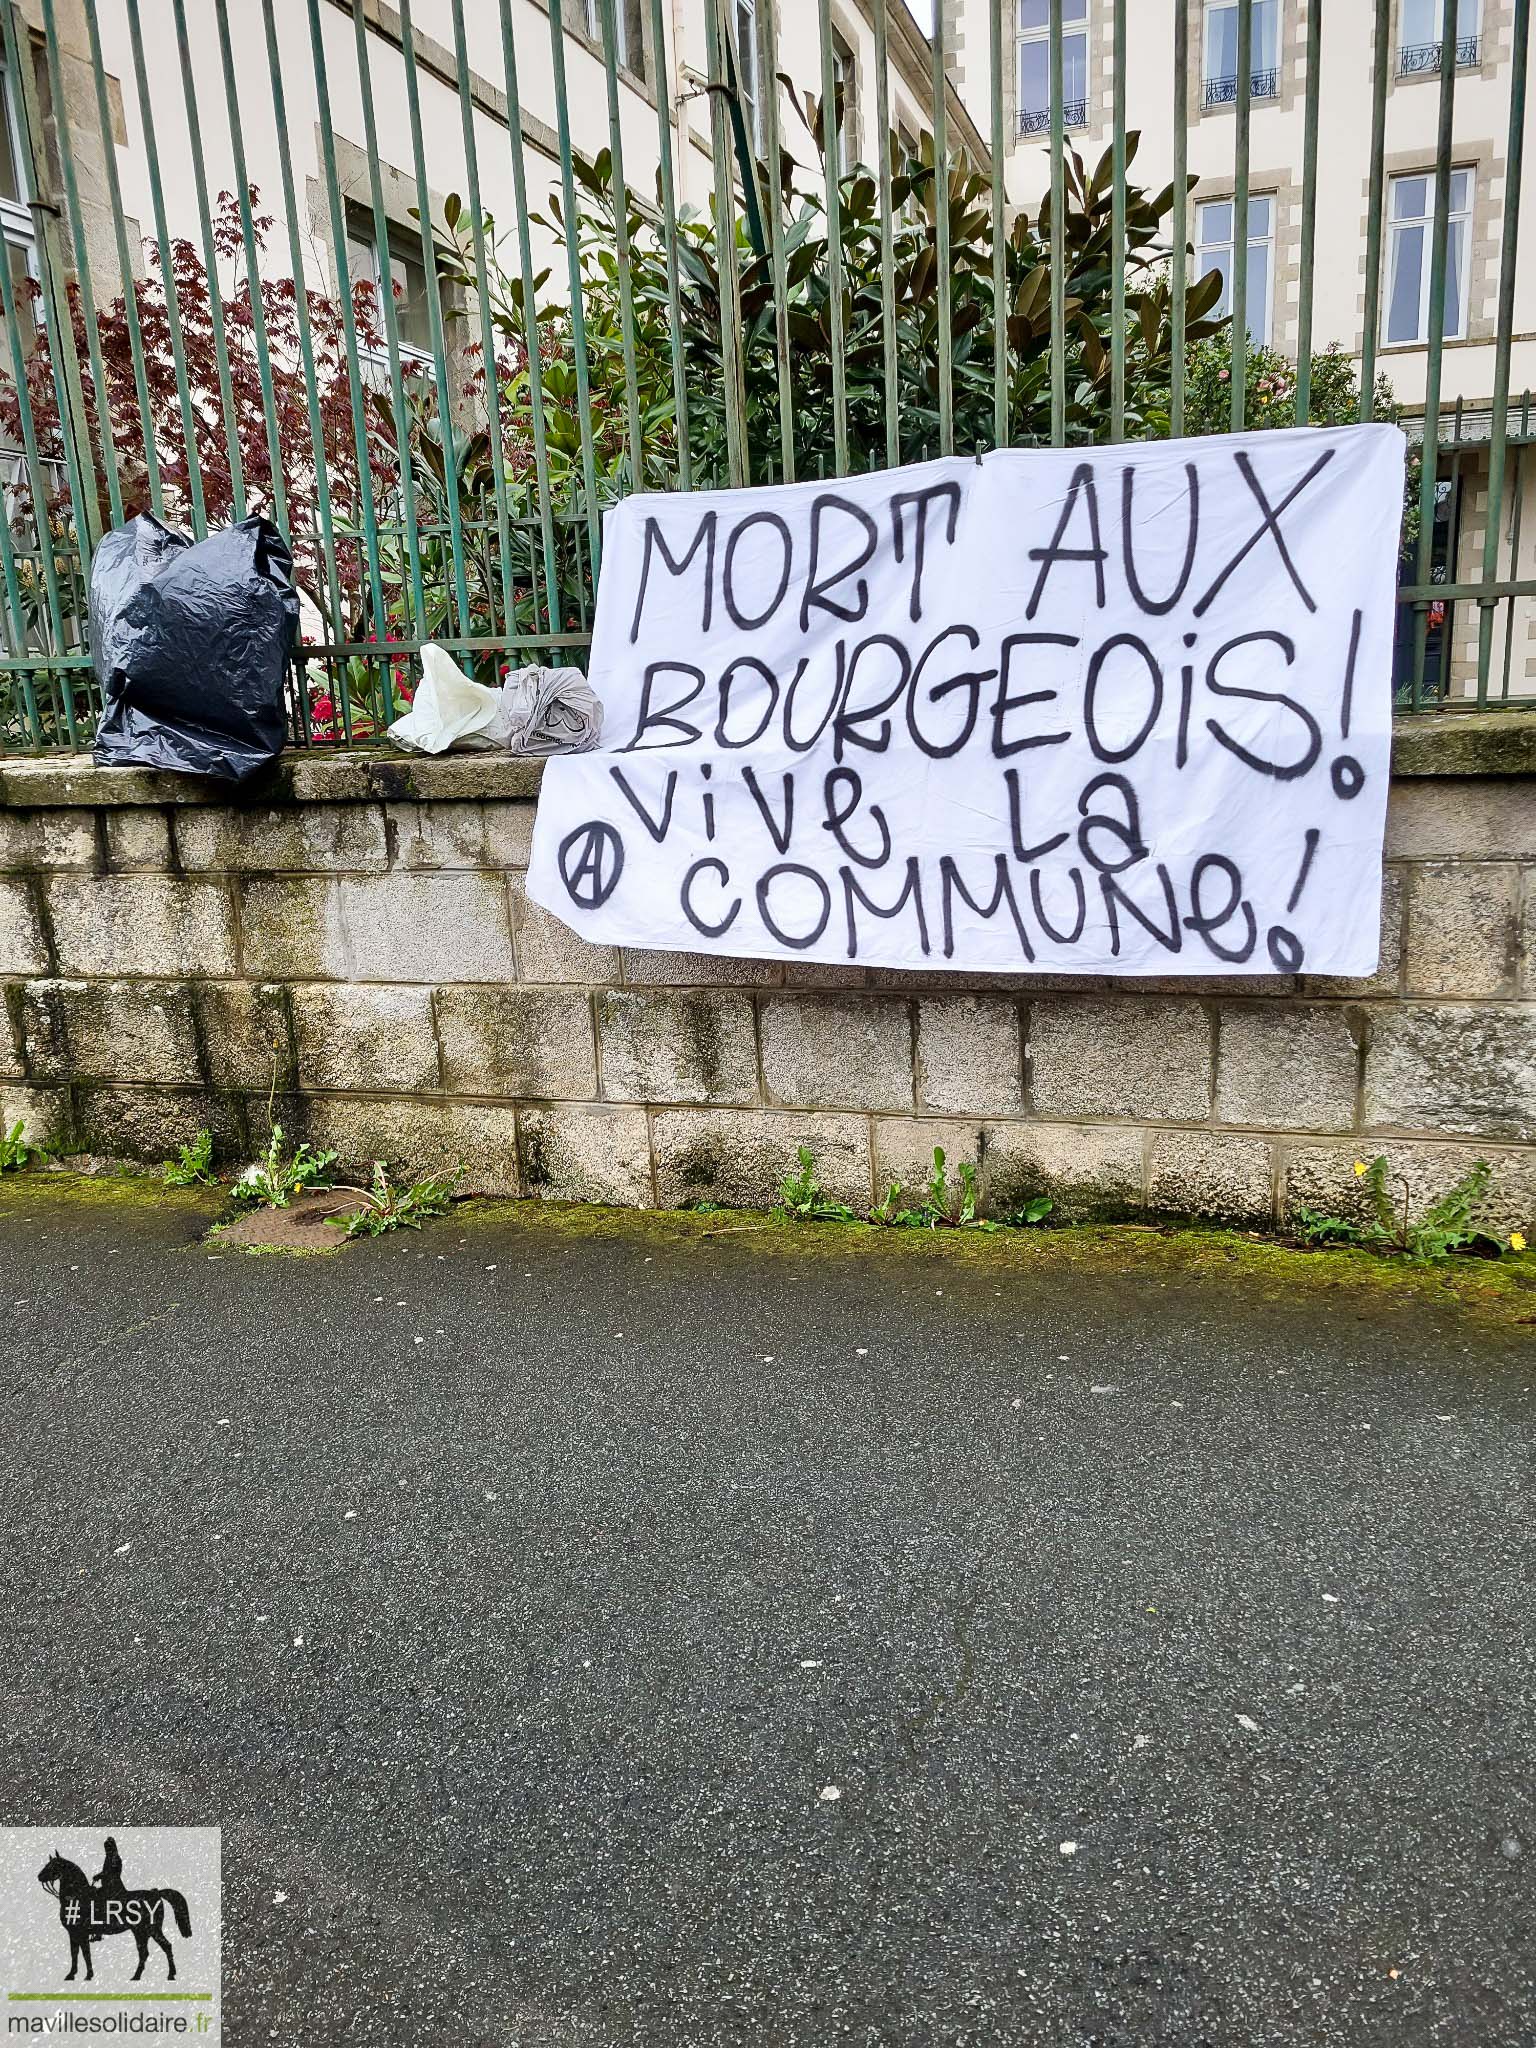 MORT AUX
BOURGEOiS!
ViVe La
Ⓐ COMMUNe!
# LRSY
mavillesolidaire.fr